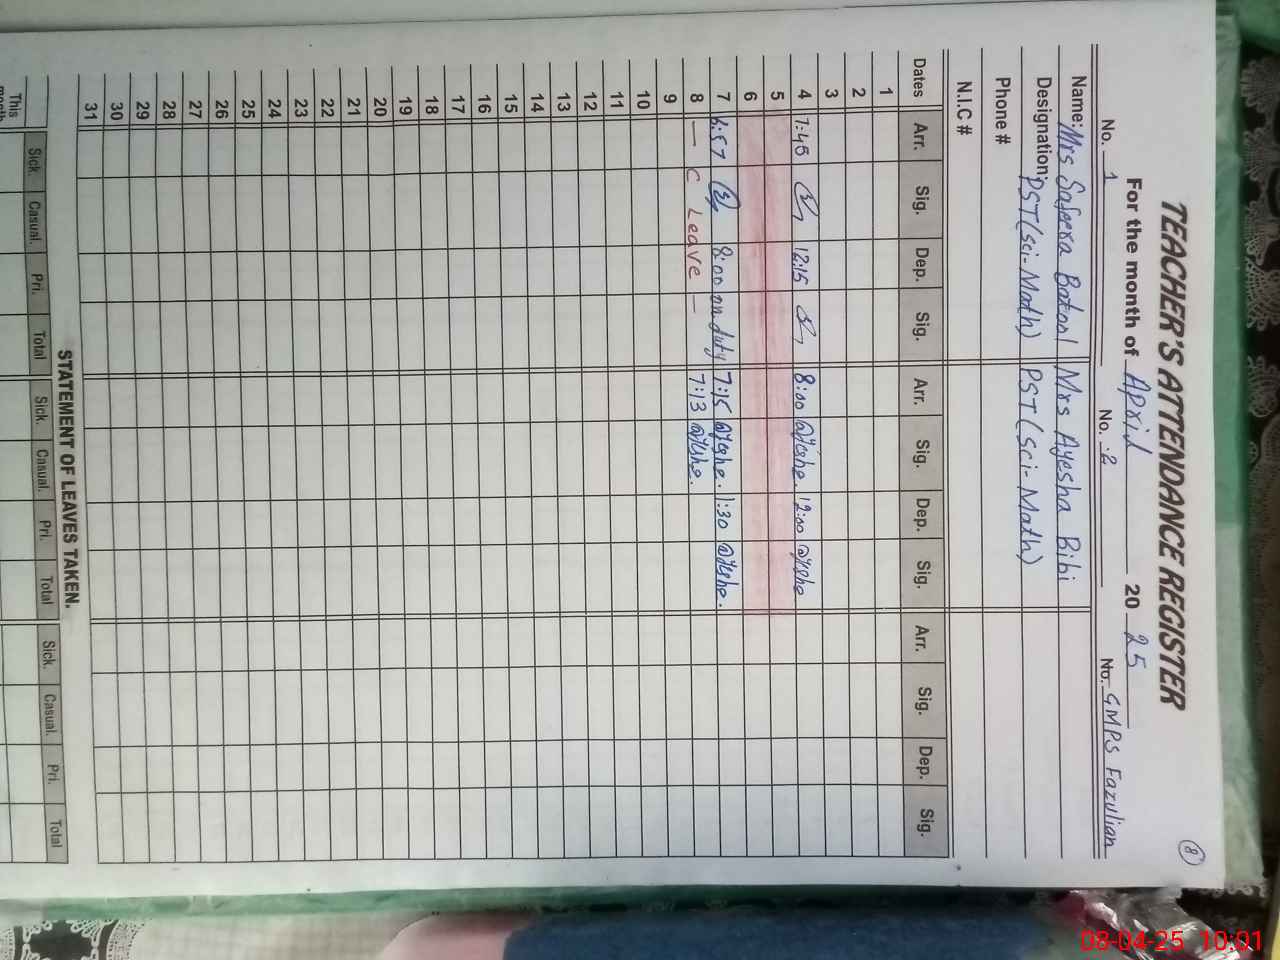 8
TEACHER'S ATTENDANCE REGISTER
For the month of April 20 25
No. 1 No. 2 No. GMPS Fazulian
Name: Mrs Safeera Batool Mrs Ayesha Bibi
Designation: PST(Sci-Math) PST(Sci-Math)
Phone #
N.I.C #
Dates Arr. Sig. Dep. Sig. Arr. Sig. Dep. Sig. Arr. Sig. Dep. Sig.
1
2
3
4 7:45 12:15 8:00 12:00
5
6
7 6:57 8:00 on duty 7:15 1:30
8 — C Leave — 7:13
9
10
11
12
13
14
15
16
17
18
19
20
21
22
23
24
25
26
27
28
29
30
31
STATEMENT OF LEAVES TAKEN.
Sick. Casual. Pri. Total Sick. Casual. Pri. Total Sick. Casual. Pri. Total
This month
08-04-25 10:01